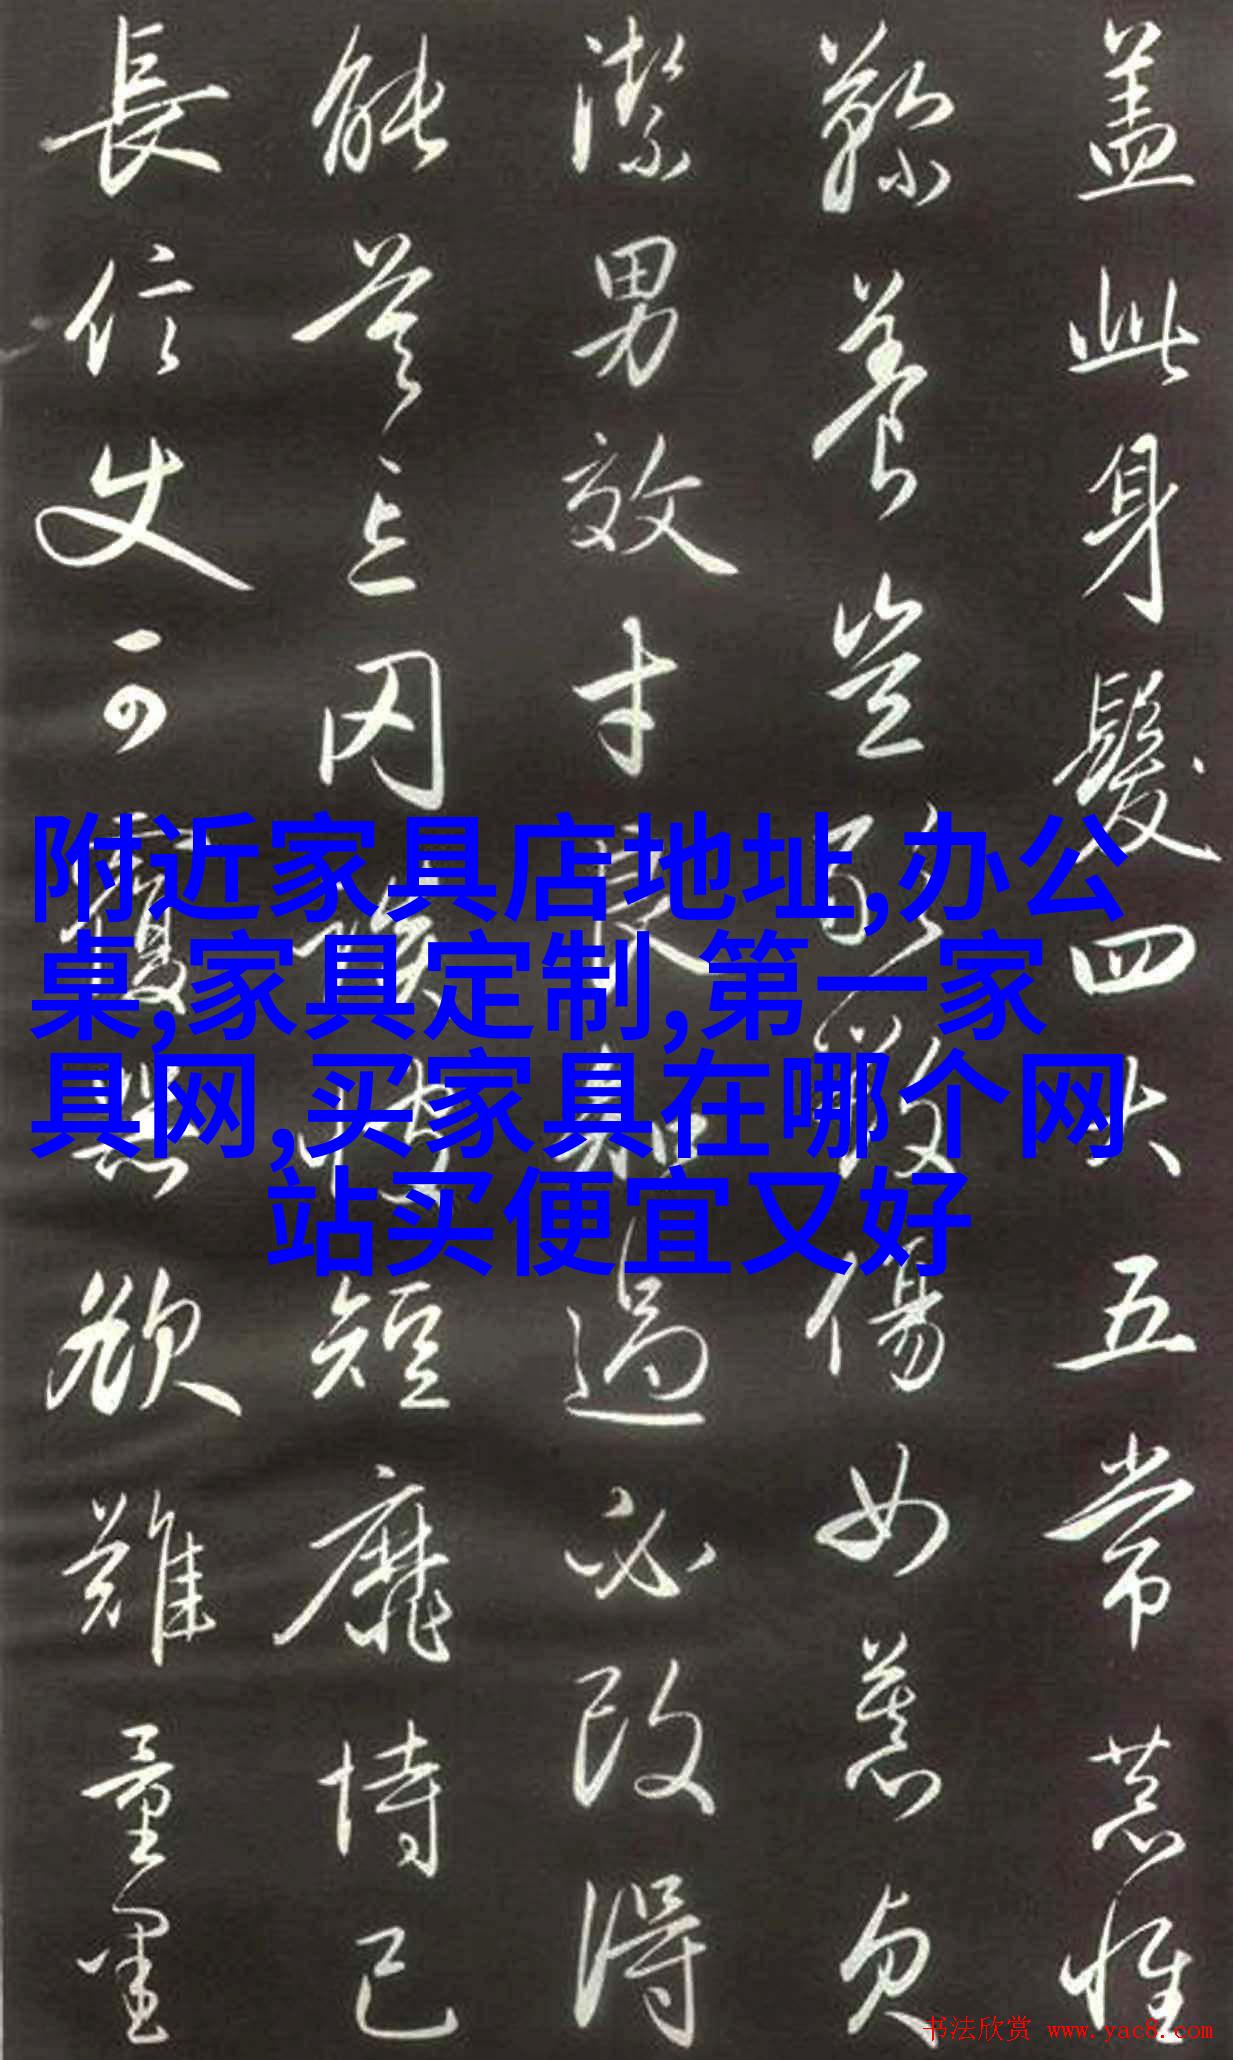 盖此身髮四大五常恭惟
鞠養豈敢毀傷女慕貞
潔男效才良知過必改得
能莫忘罔談彼短靡恃己
長信使可覆器欲難量墨
附近家具店地址,办公
桌,家具定制,第一家
具网,买家具在哪个网
站买便宜又好
书法欣赏 www.yac8.com